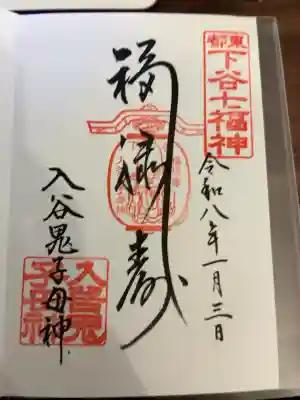 東都
下谷七福神
令和八年一月三日
福禄寿
入谷鬼子母神
入谷鬼
子母神